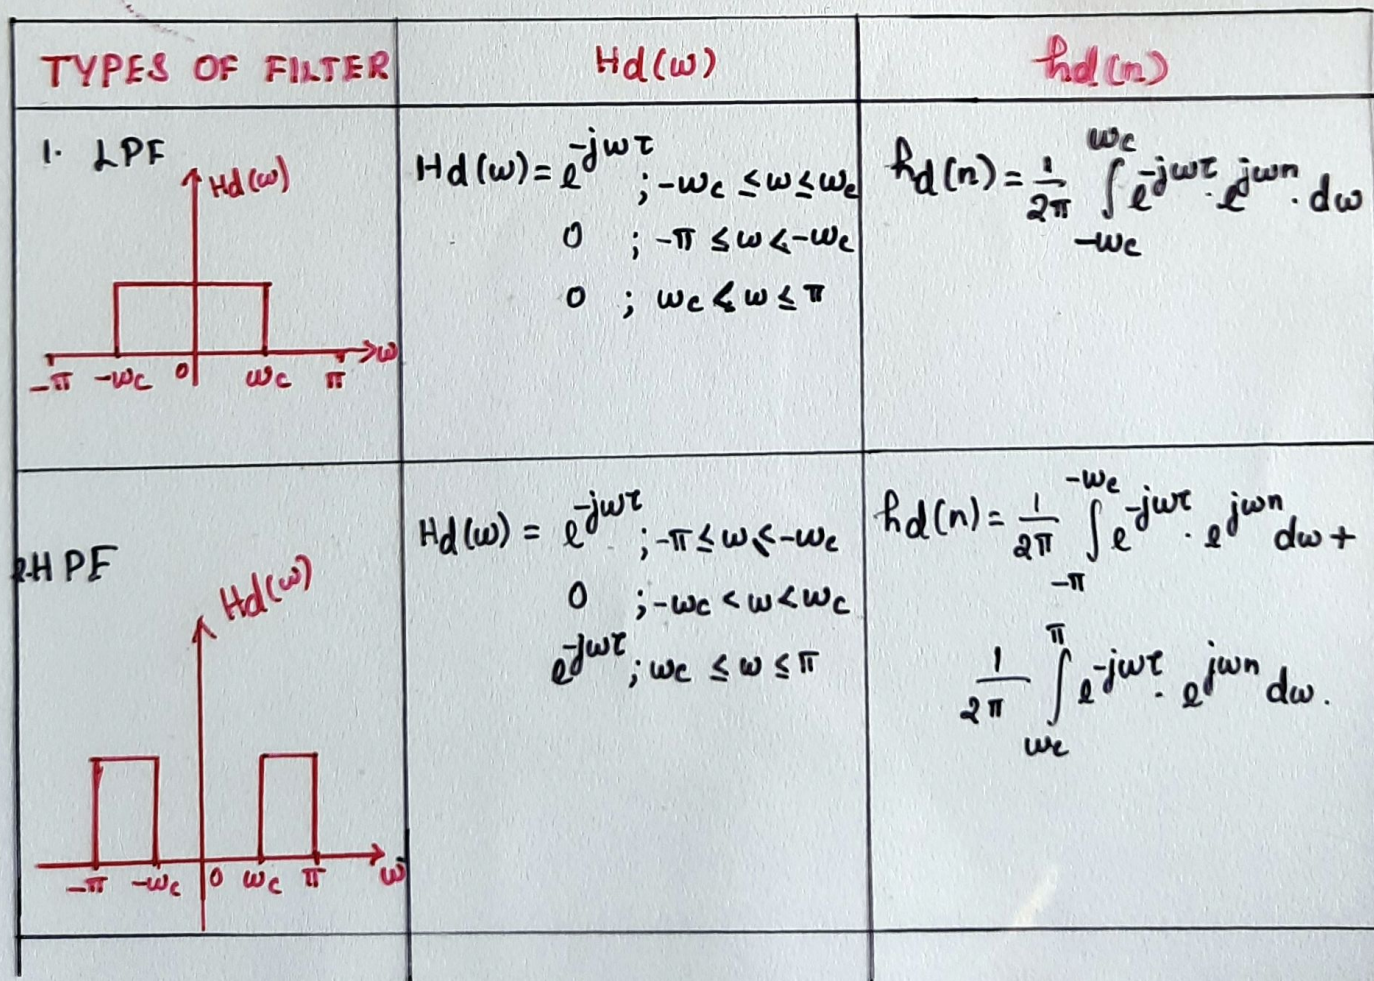 TYPES OF FILTER Hd(ω) hd(n)
1. LPF
Hd(ω)
-π -ωc 0 ωc π ω
Hd(ω) = e^-jωτ ; -ωc ≤ ω ≤ ωc
0 ; -π ≤ ω < -ωc
0 ; ωc < ω ≤ π
hd(n) = 1/2π ∫_-ωc^ωc e^-jωτ . e^jωn . dω
2. HPF
Hd(ω)
-π -ωc 0 ωc π ω
Hd(ω) = e^-jωτ ; -π ≤ ω ≤ -ωc
0 ; -ωc < ω < ωc
e^-jωτ ; ωc ≤ ω ≤ π
hd(n) = 1/2π ∫_-π^-ωc e^-jωτ . e^jωn dω +
1/2π ∫_ωc^π e^-jωτ . e^jωn dω.